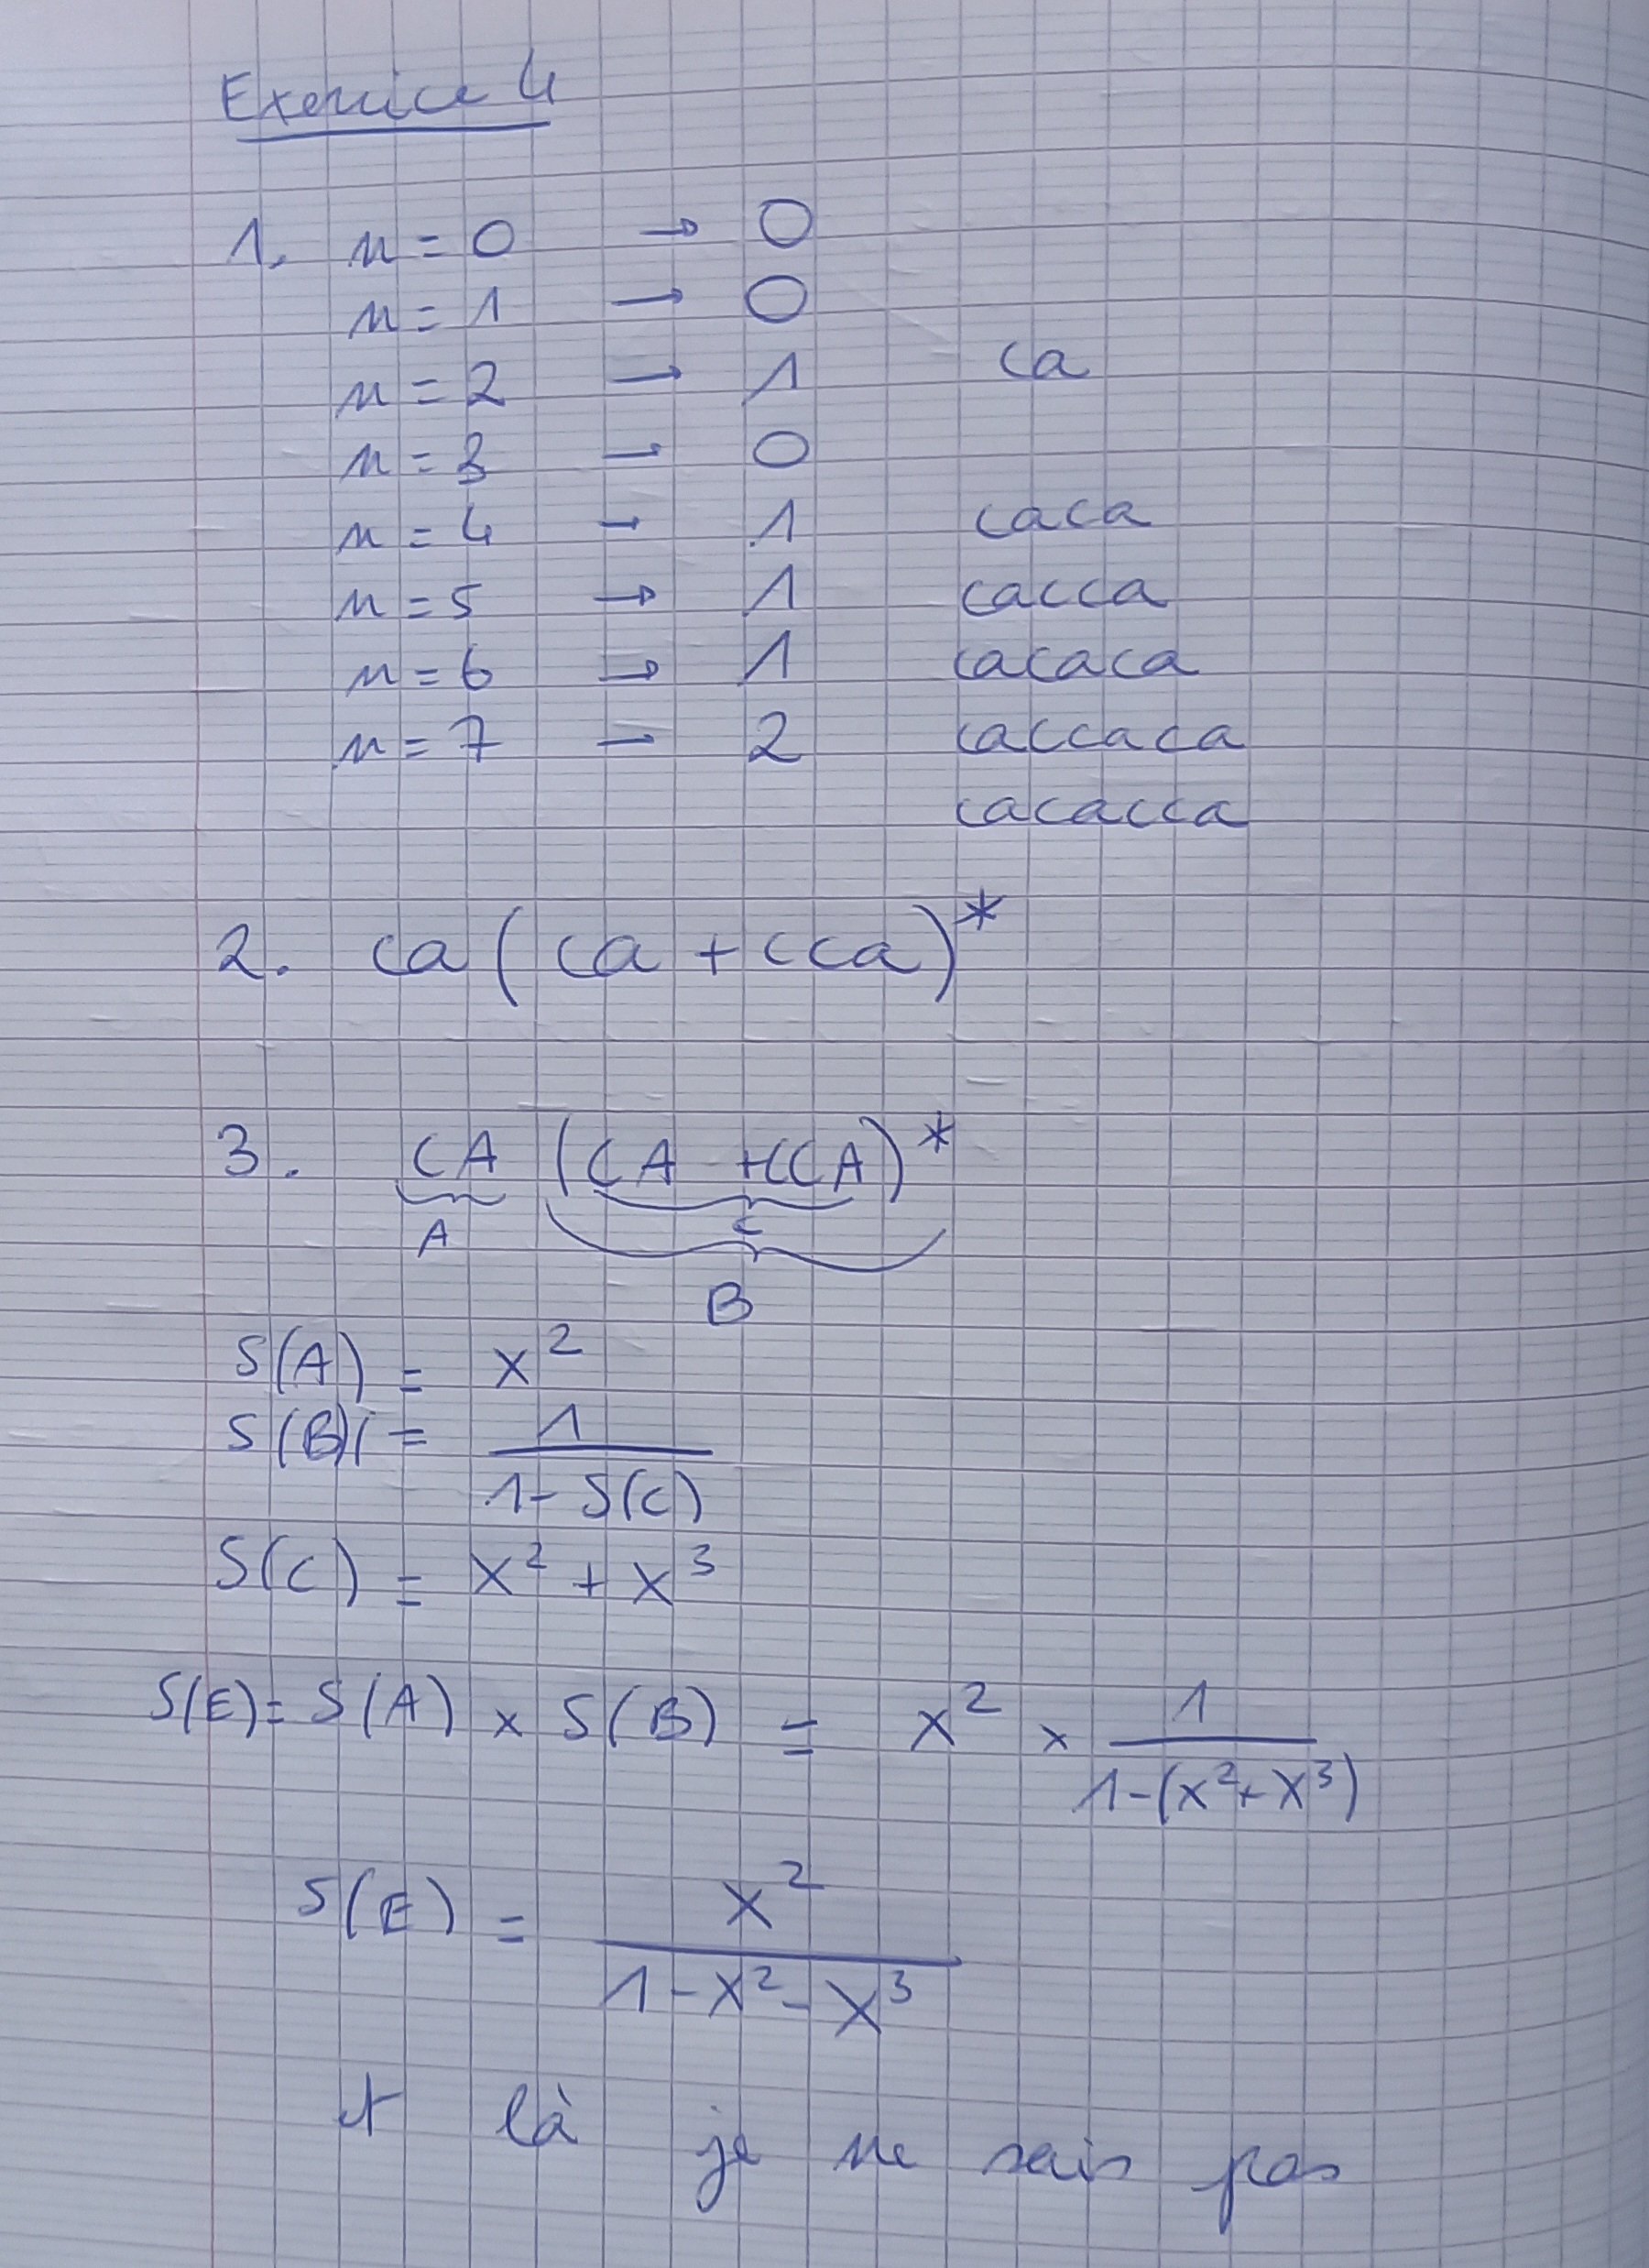 Exercice 4
1. n = 0 → 0
n = 1 → 0
n = 2 → 1 ca
n = 3 → 0
n = 4 → 1 caca
n = 5 → 1 cacca
n = 6 → 1 cacaca
n = 7 → 2 caccaca
cacacca
2. ca ( ca + cca )*
3. CA (CA + CCA)*
A C
B
S(A) = x²
S(B) = 1 / (1 - S(C))
S(C) = x² + x³
S(E) = S(A) × S(B) = x² × 1 / (1-(x²+x³))
S(E) = x² / (1 - x² - x³)
là je ne sais pas